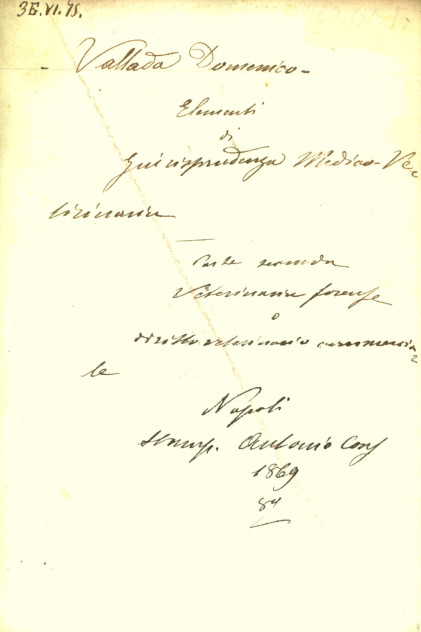 36.VI.75.
Vallada Domenico -
Elementi
di
Giurisprudenza Medico-Ve-
terinaria
Parte seconda
Veterinaria forense
o
diritto veterinario commercia-
le
Napoli
Stamp. Antonio
1869
8°